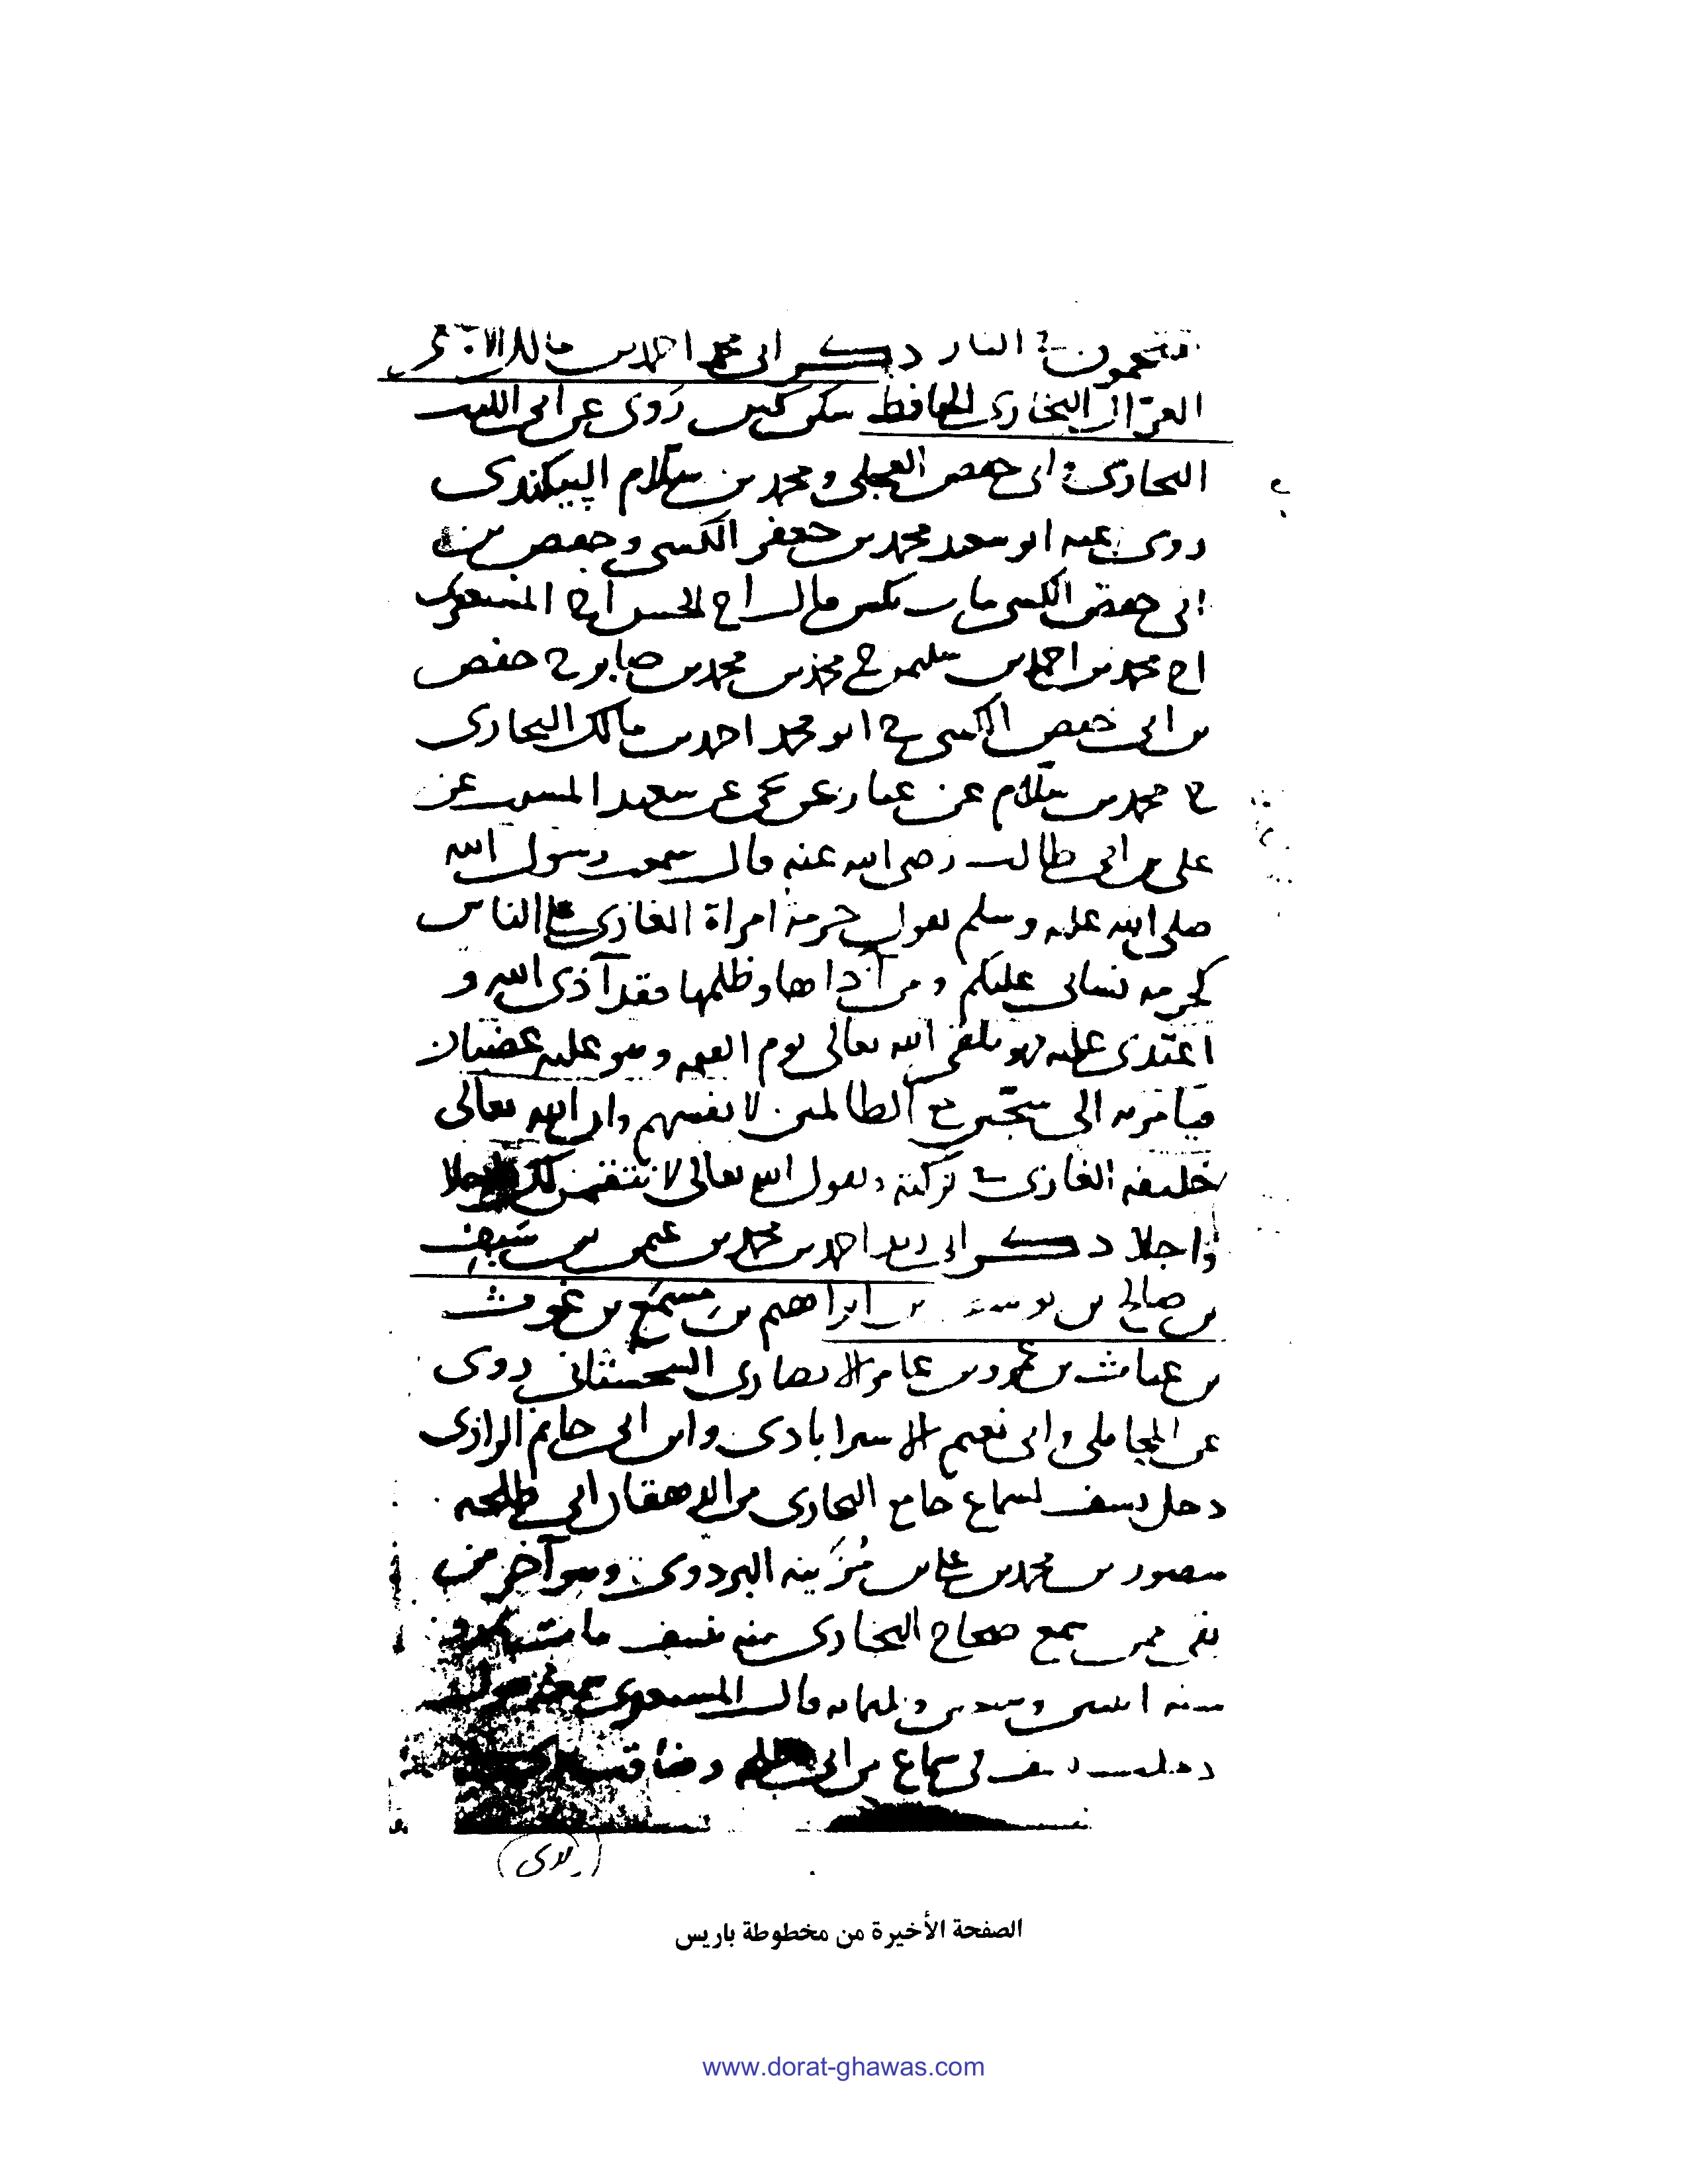 في النار ذكر ابي محمد احمد بن مالك
البخاري الحافظ سكن كس روى عن ابي الليث
البخاري و ابي حفص العجلي و محمد بن سلام البيكندي
روى عنه ابو سعيد محمد بن جعفر الكسي و حفص بن
ابي حفص الكسي مات بكس قال اخ الحسن اخ المستغفري
اخ محمد بن احمد بن محمد بن محمد بن صابر ح حفص
بن ابي حفص الكسي ح ابو محمد احمد بن مالك البخاري
ح محمد بن سلام عن عباد عن يحيى عن سعيد المسيب عن
علي بن ابي طالب رضي الله عنه قال سمعت رسول الله
صلى الله عليه و سلم يقول حرمة امراة الغازي على الناس
كحرمة نسائي عليكم و من آذاها و ظلمها فقد آذى الله و
اعتدى عليه فهو يلقى الله تعالى يوم القيمة و هو عليه غضبان
فيامر به الى سجين مع الظالمين لانفسهم و ان الله تعالى
خليفة الغازي في تركته و يقول الله تعالى لا
واجلا ذكر ابي احمد بن محمد بن عمر بن سيف
بن صالح بن يوسف بن ابراهيم بن مسمع بن غوث
بن غياث بن عمرو بن عامر الانصاري السجستاني روى
عن المحاملي و ابي نعيم الاسترابادي و ابن ابي حاتم الرازي
دخل نسف لسماع جامع البخاري من الدهقان ابي طلحة
منصور بن محمد بن علي بن مُزَينة البزدوي و هو آخر من
بقي ممن سمع صحاح البخاري منه بنسف مات
سنة و ستين و ثلثمائة قال المستغفري
دخلت نسف في سماع بن ابي
الصفحة الأخيرة من مخطوطة باريس
www.dorat-ghawas.com